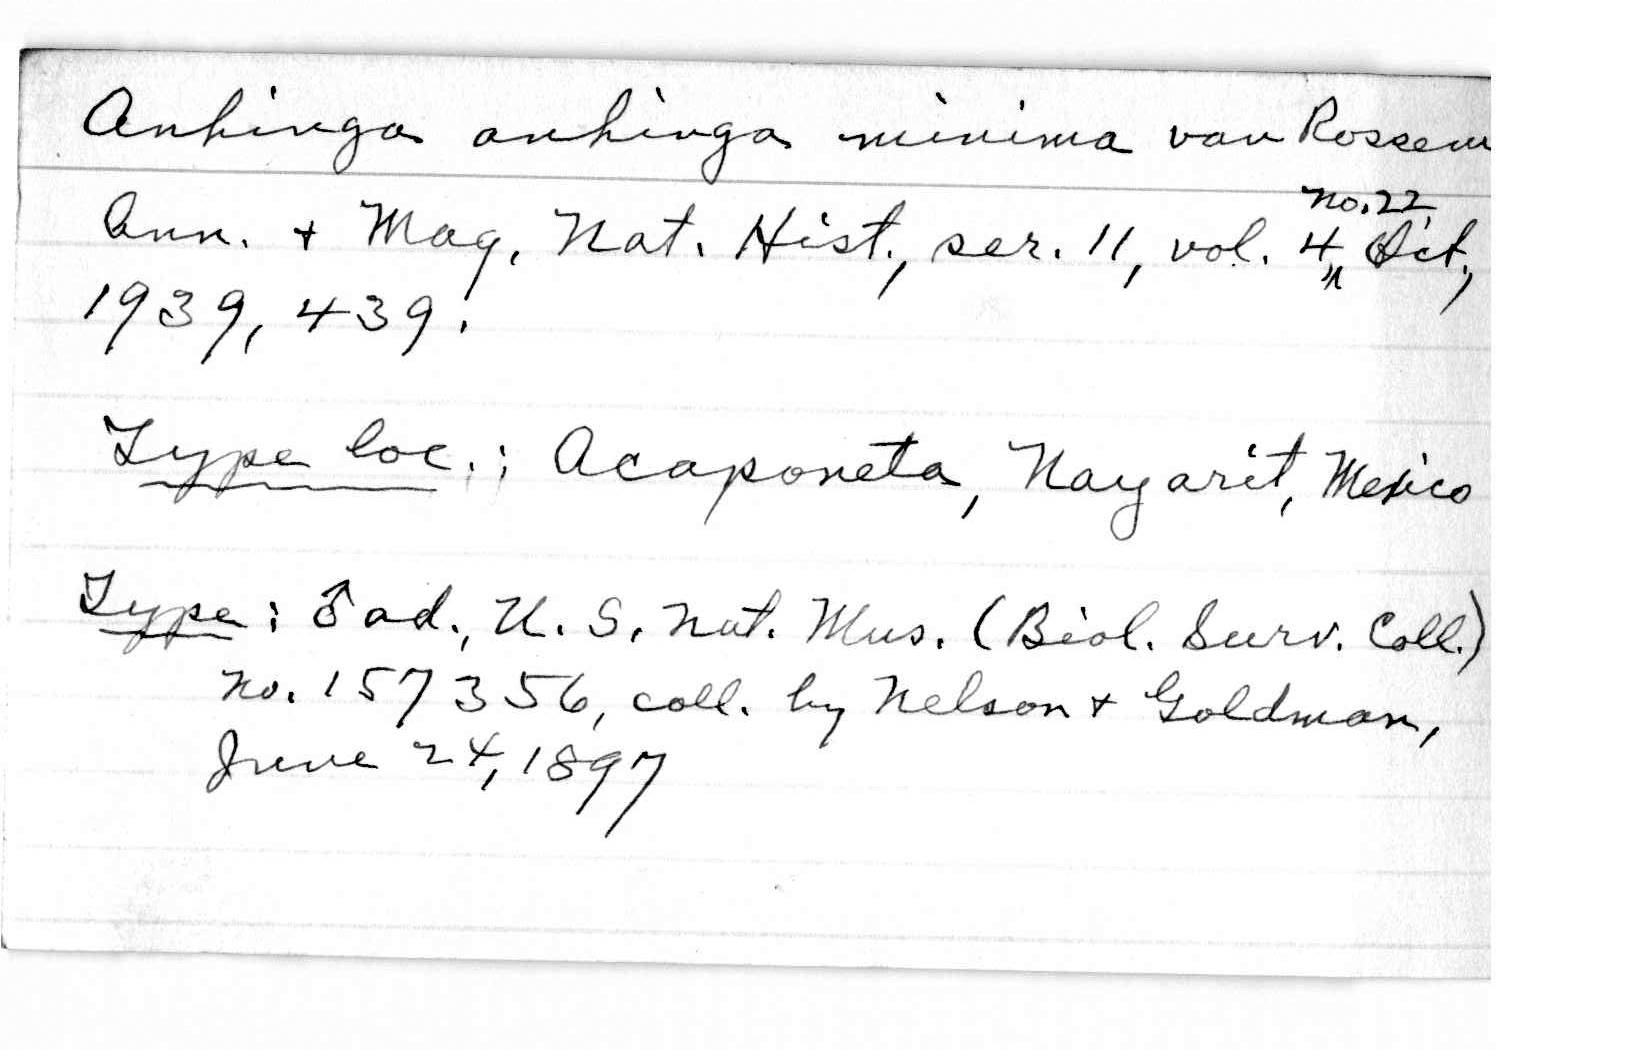 Anhinga anhinga minima van Rossem
Ann. + Mag. Nat. Hist., ser. 11, vol. 4, no. 22, Oct.,
1939, 439.
Type loc.: Acaponeta, Nayarit, Mexico
Type: ♂ ad., U. S. Nat. Mus. (Biol. Surv. Coll.)
no. 157356, coll. by Nelson + Goldman,
June 24, 1897